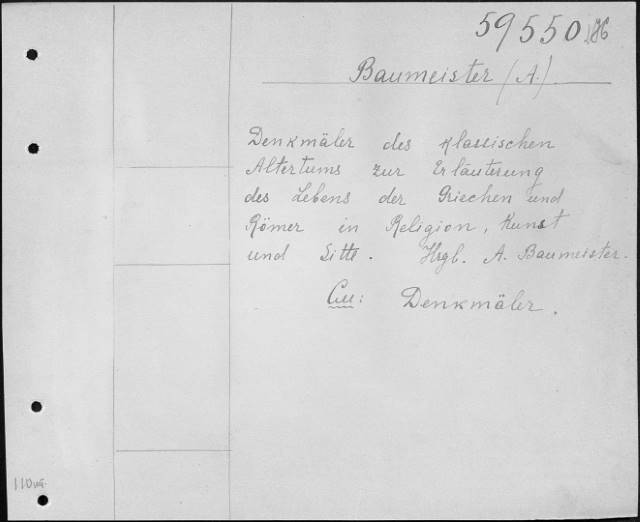 59550
Baumeister (A.)
Denkmäler des klassischen
Altertums zur Erläuterung
des Lebens der Griechen und
Römer in Religion, Kunst
und Sitte. Hrgb. A. Baumeister.
См: Denkmäler.